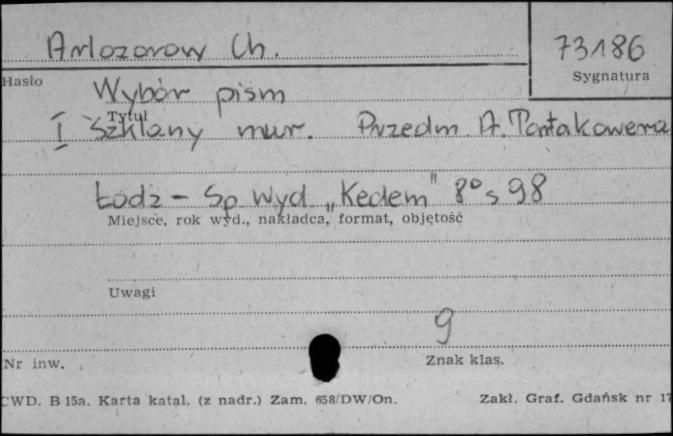 Arlozorow Ch.
73186
Hasło
Sygnatura
Wybór pism
Tytuł
I Szklany mur. Przedm A. Tartakowera
Łodz - Sp Wyd „Kedem" 8° s 98
Miejsce, rok wyd., nakładca, format, objętość
Uwagi
9
Nr inw.
Znak klas.
CWD. B 15a. Karta katal. (z nadr.) Zam. 658/DW/On.
Zakł. Graf. Gdańsk nr 17